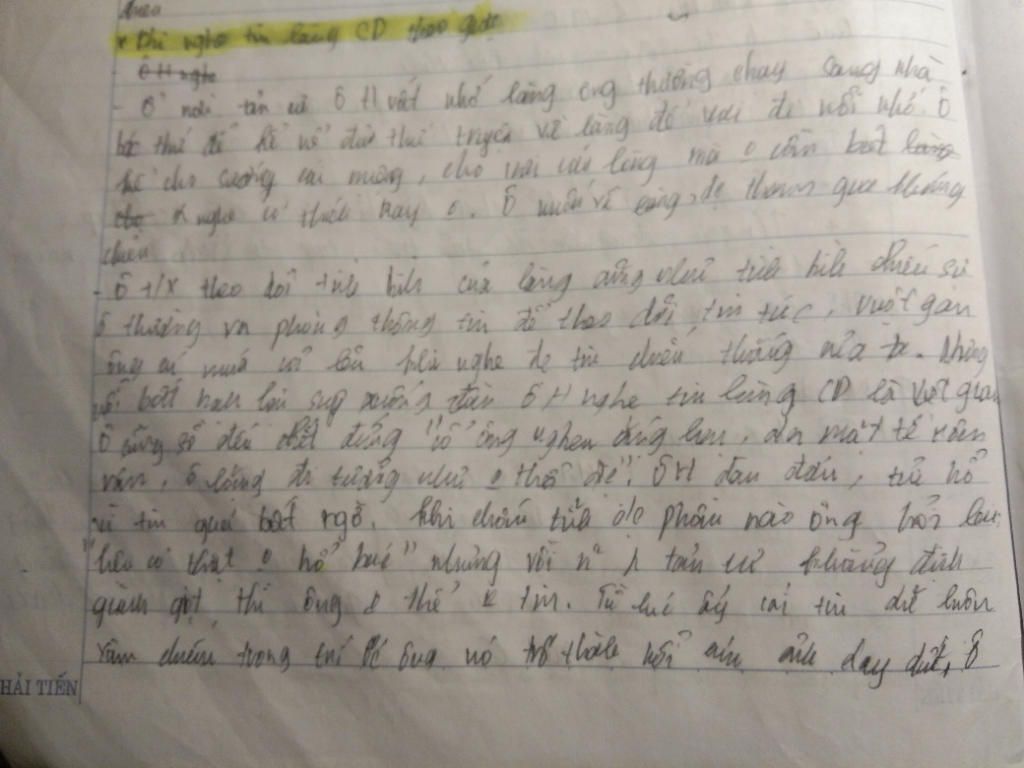 * Khi nghe tin làng CD theo giặc
- Ô H nghe
- Ở nơi tản cư ô H rất nhớ làng ông thường chạy sang nhà
bác thứ để kể về đủ thứ truyện về làng để vơi đi nỗi nhớ. Ô
kể cho sướng cái miệng, cho vơi cái lòng mà o cần biết
nghe có thích hay o. Ô muốn về làng, đc tham gia kháng
chiến
- Ô t/x theo dõi tình hình của làng cũng như tình hình chiến sự
ô thường ra phòng thông tin để theo dõi tin tức, ruột gan
ông cứ múa cả lên khi nghe đc tin chiến thắng của ta. Nhưng
nỗi bất hạnh lại sụp xuống đầu ô H nghe tin làng CD là việt gian
Ô cũng sốc đến "cổ ông nghẹn ắng lại, da mặt tê rân
rân, ô lặng đi tưởng như o thở đc". Ô H đau đớn, tủi hổ
vì tin quá bất ngờ. Khi trấn tĩnh đc phần nào ông hỏi lại
"liệu có thật o hở bác" nhưng với n n tản cư khẳng định
thì ông o thể o tin. Từ lúc ấy cái tin dữ luôn
xâm chiếm trong trí óc ông nó trở thành nỗi ám ảnh day dứt, ô
HẢI TIẾN